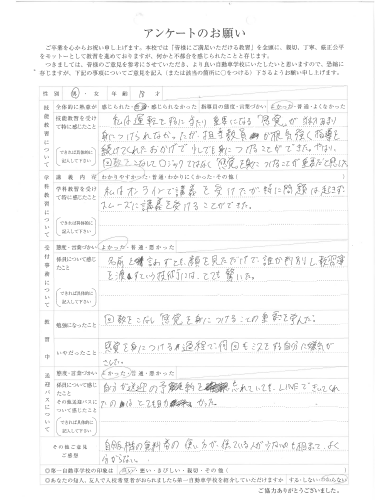 アンケートのお願い
ご卒業を心からお祝い申し上げます。本校では「皆様にご満足いただける教育」を念頭に、親切、丁寧、厳正公平
をモットーとして教育を進めておりますが、何かと不都合な点もあったことと存じます。
つきましては、皆様のご意見を参考にさせていただき、より良い自動車学校にいたしたいと思いますので、恐縮に
存じますが、下記の事項についてご意見を記入（または該当の箇所に○をつける）下さるようお願い申し上げます。
性別 男・女 年齢 才
技能教習について
全体的に熱意が 感じられた・普通・感じられなかった 指導員の態度・言葉づかい よかった・普通・よくなかった
技能教習を受けて特に感じたこと
できれば具体的に記入して下さい
私は運転をするにあたり重要になる「感覚」が
身につけられなかったが、担当教員が根気強く指導を
続けてくれたおかげで少しでも身につけることができた。やはり、
回数をこなしてロジックではなく「感覚」を身につけることが重要だと
学科教習について
講義内容 わかりやすかった・普通・わかりにくかった・その他（ ）
学科教習を受けて特に感じたこと
できれば具体的に記入して下さい
私はオンラインで講義を受けたが、特に問題は起きず
スムーズに講義を受けることができた。
受付事務について
態度・言葉づかい よかった・普通・悪かった
係員について感じたこと
できれば具体的に記入して下さい
名前を言わずとも、顔を見ただけで誰か判別し、教習簿
を渡すという技術には、とても驚いた。
教習中
勉強になったこと
回数をこなし「感覚」を身につけることの重要を学んだ。
いやだったこと
感覚を身につける過程で何回もミスをする自分に嫌気が
さした。
送迎バスについて
態度・言葉づかい よかった・普通・悪かった
係員について感じたこと
その他送迎バスについて感じたこと
できれば具体的に記入して下さい
自分が送迎の予約を忘れていても、LINEできてくれ
たのは、とても
その他ご意見ご感想
自動販売機の
分からない。
◎第一自動車学校の印象は 良い・悪い・きびしい・親切・その他（ ）
◎あなたの知人、友人で入校希望者がおられましたら第一自動車学校を紹介していただけますか する・しない・わからない
ご協力ありがとうございました。